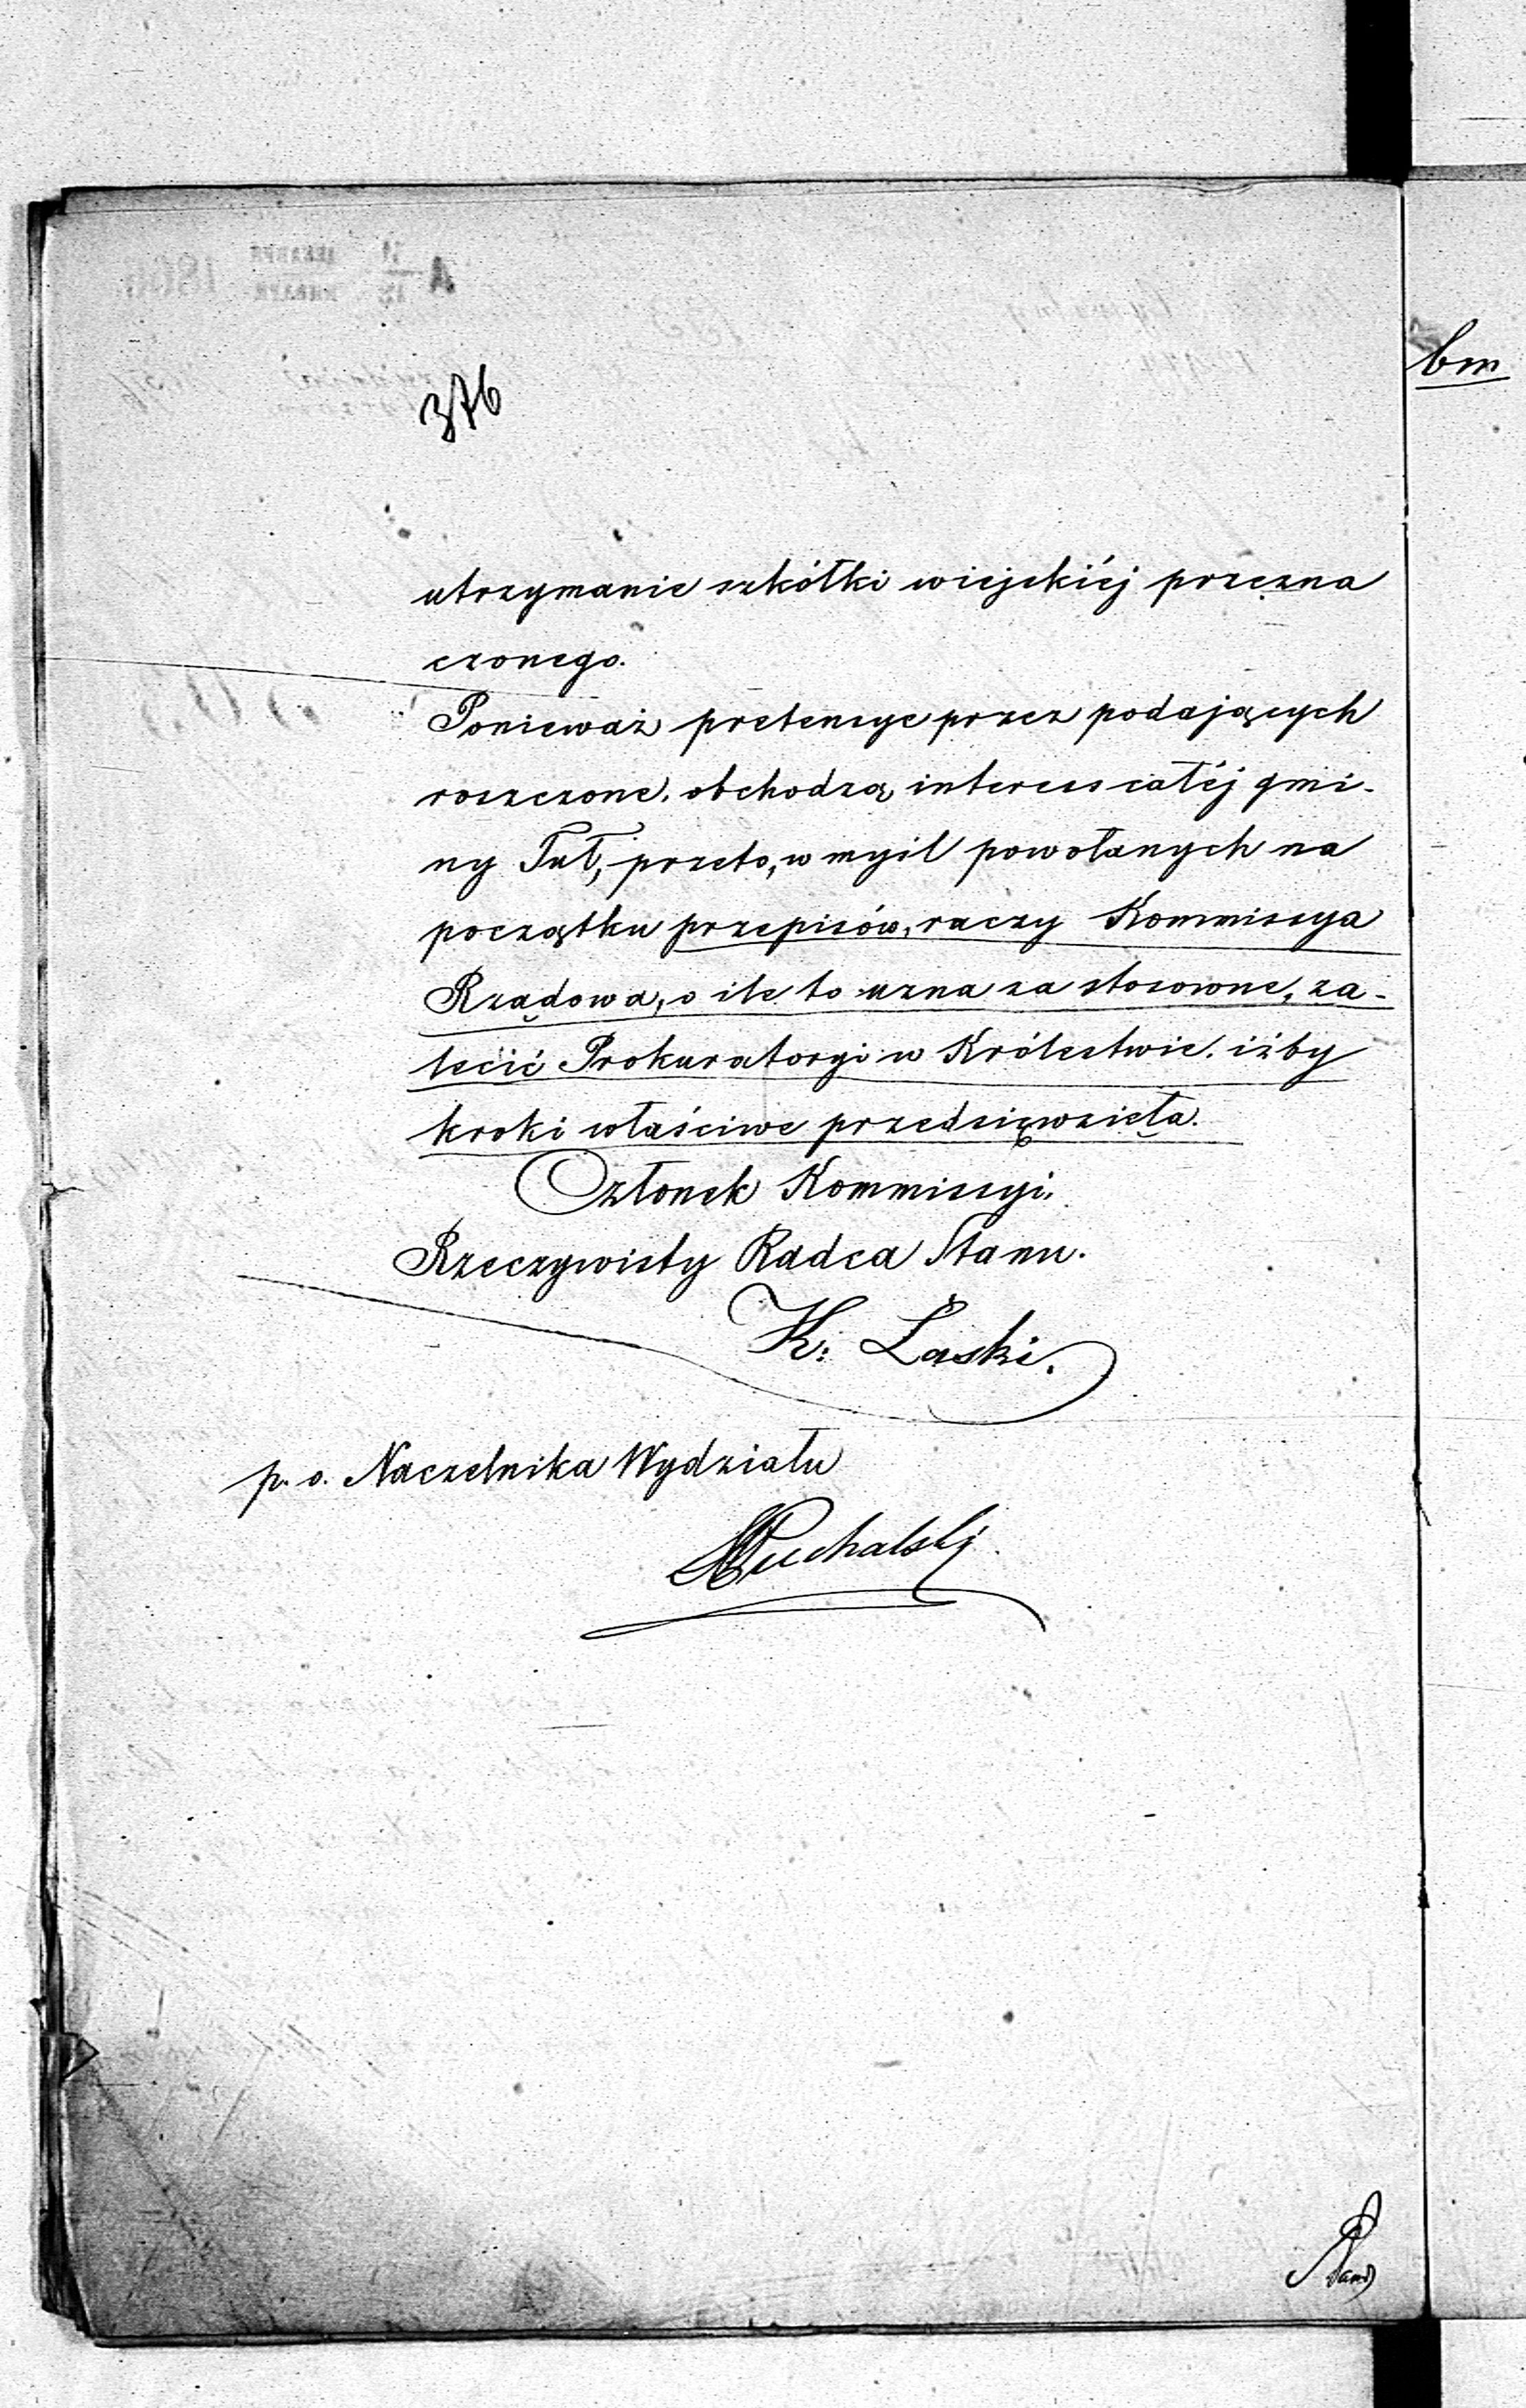 376
utrzymanie szkółki wiejskiéj przezna
czonego.
Ponieważ pretensye przez podających
roszczone, obchodzą interess całéj gmi-
ny Tuł, przeto, w myśl powołanych na
początku przepisów, raczy Kommissya
Rządowa, o ile to uzna za stosowne, za-
lecić Prokuratoryi w Królestwie, iżby
kroki właściwe przedsięwzięła.
Członek Kommissyi,
Rzeczywisty Radca Stanu.
K: Laski.
p. o. Naczelnika Wydziału
Puchalski